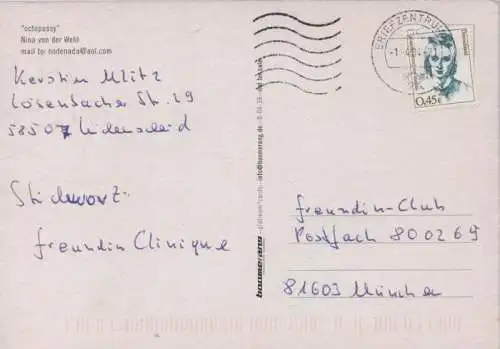 "octopussy"
Nina von der Wehl
mail to: nodenada@aol.com
Kerstin
Lösenbacher Str. 29
58507 Lüdenscheid
Stichwort:
freundin Clinique
boomerang
platinum*cards · info@boomerang.de
BRIEFZENTRUM
0,45€
freundin-Club
Postfach 800269
81603 München